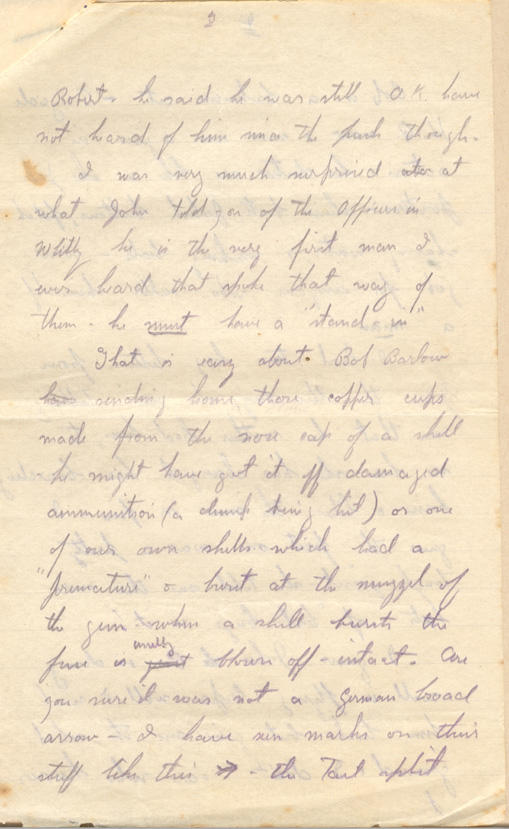 2
Robert he said he was still O.K. have
not heard of him since the push though.
I was very much surprised at
what John told you of the Officers in
Whitby he is the very first man I
ever heard that spoke that way of
them - he must have a "stand in"
That is easy about. Bob Barlow
sending home those copper cups
made from the nose cap of a shell
he might have got it off damaged
ammunition (a dump being hit) or one
of our own shells which had a
"premature" or burst at the muzzel of
the gun when a shell bursts the
fuse is usually blown off - intact. Are
you sure it was not a German broad
arrow - I have seen marks on their
stuff like this - the Tail split